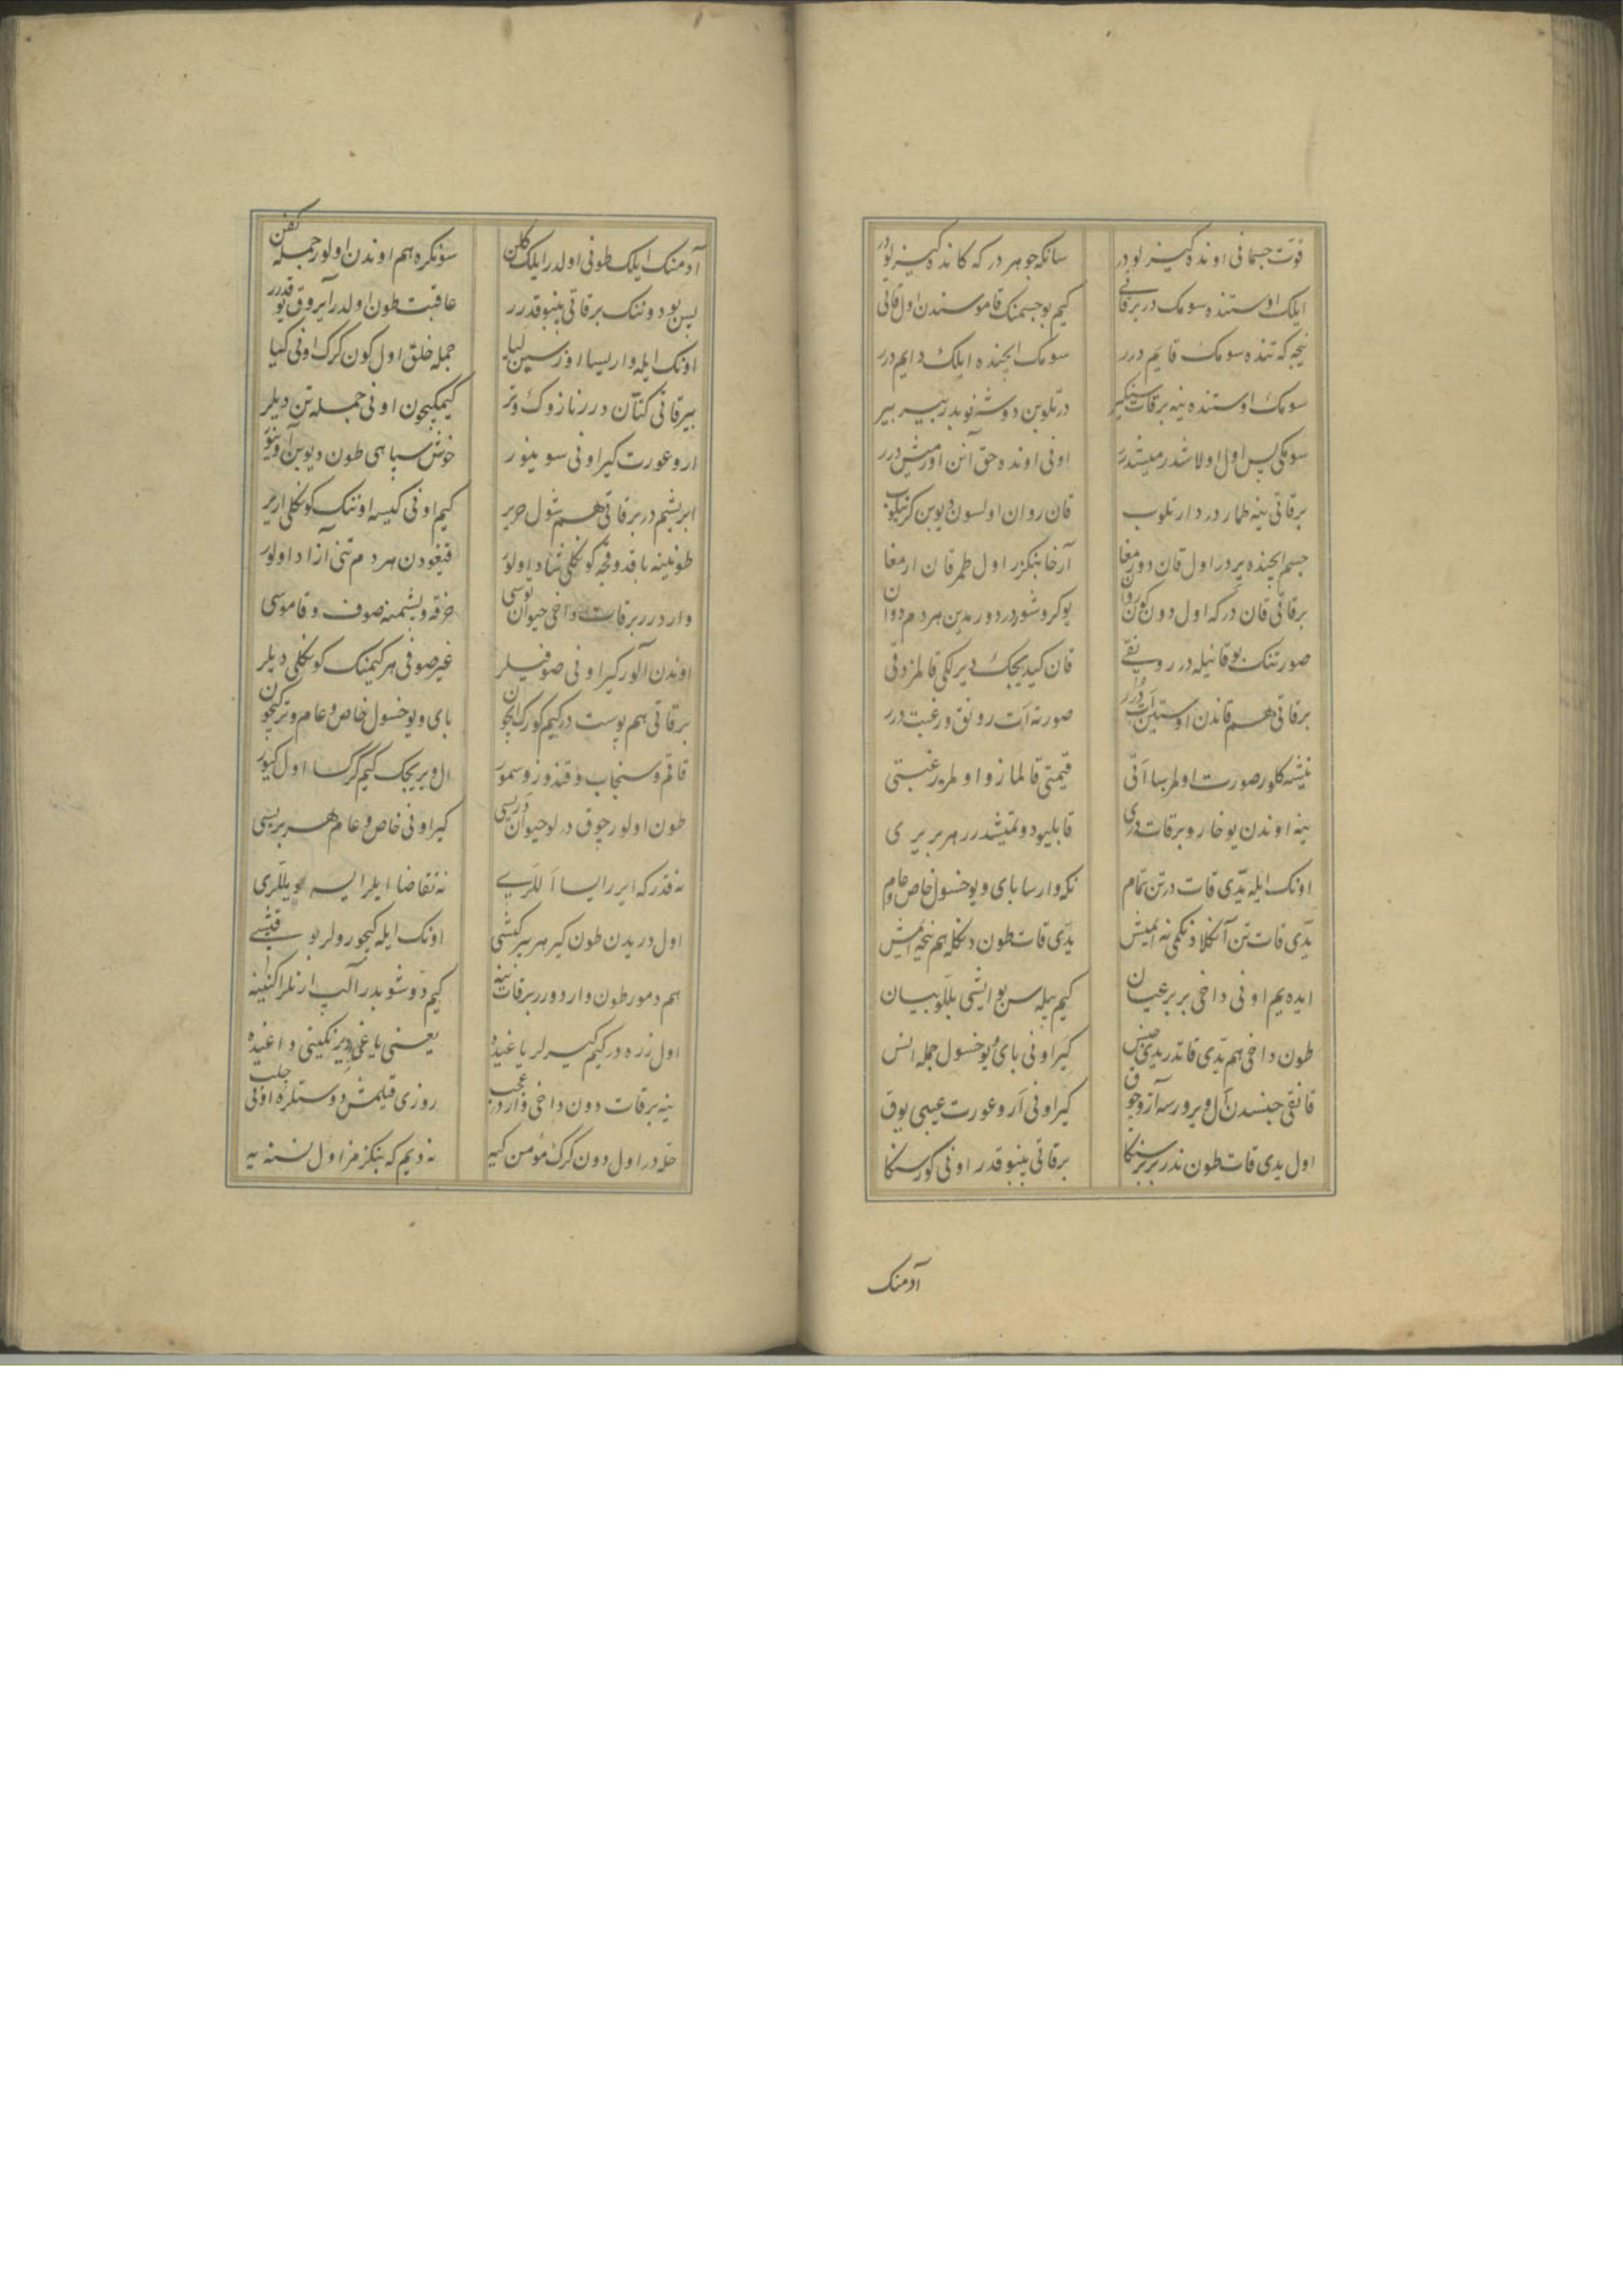 قوّت جسمانی اونده گیزلودر سانکه جوهر در که کانده گیزلودر
ایلک اوستنده سومک در برقاتی کیم بو جسمنک قاموسندن اول قاتی
نیجه که تنده سومک قایم درر سومک ایچنده ایلک دایم درر
سومک اوستنده ینه برقات سینکیر در تلوین دوشنوبدر بیر بیر
سومکی پس اول اولاشدرمیشدرر اونی اونده حق آنن اورمیش درر
برقاتی ینه طمار در دارتلوب قان روان اولسون دیوین
جسم ایچنده بر در اول قان دورمغا آرخا بنکزر اول طمر قان ارمغا
برقاتی قان در که اول دون کون روان یوکروشوردر دورمدین هر دم دوان
صورتنک بو قانیله در رونقی قان کیدیجک دیرلکی قالمز دقی
برقاتی هم قاندن اوستین ات درر صورته ات رونق ورغبت درر
نیشه کلور صورت اولمرسا اتی قیمتی قالماز و اولمره رغبتی
ینه اوندن یوخارو برقات دری قابلیو دوتمیشدرر هر بر یری
اونک ایله یدّی قات در تن تمام نکه وارسا بای و یوخسول خاص و عام
یدّی قات تن آنکلادنکمی نه ایمیش یدّی قات طون دنکله هم نیجه ایمش
ایده یم اونی داخی بر بر عیان کیم بیله سن بو ایشی بللو بیان
طون داخی هم یدّی قاتدر یدی جنس گیر اونی بای و یوخسول جمله انس
قانقی جنسدن آل ویرورسه آز و چوق گیر اونی ار و عورت عیبی یوق
اول یدی قات طون ندر بر بر سنکا برقاتی پنبوقدر اونی کورسنکا
آدمنک
آدمنک ایلک طونی اولدر ایلک کلن سونکره هم اوندن اولور جمله کفن
پس بو دوننک برقاتی پنبوقدرر عاقبت طون اولدر آیروق یوقدرر
اونک ایله وار یسا اوزسین لبا جمله خلق اول کون کرک اونی گیا
بیرقاتی کتآن درر نازوک و تر کیمکیچون اونی جمله تن دیلر
ار و عورت گیر اونی سوینور خوش سپاهی طون دیوبن
ابریشم در برقاتی هم شول حریر کیم اونی گیسه اوننک کونکلی اریر
طونینه باقدوقجه کونکلی شاد اولور قیغودن هر دم تنی آزاد اولور
وار درر برقات داخی حیوان توسی خرقه و پشمینه صوف و قاموسی
اوندن آلور گیر اونی صوفیلر غیر صوفی هر کیمنک کونکلی دیلر
برقاتی هم پوست در کیم کورک ایچون بای و یوخسول خاص و عام و ترک ایچون
قاقم و سنجاب و قندوز و سمور ال ویریجک کیم کرک سا اول گیور
طون اولور چوق درلو حیوان دریسی گیر اونی خاص و عام هر بریسی
نه قدر که ایرر ایسا اللری نه تقاضا ایلر ایسه یللری
اول دریدن طون گیر هر بیر کیشی اونک ایله کیچورولر بو قیشی
هم دمور طون وار دورر برقات ینه کیم دوشوبدر آلپ ارنلر اکنینه
اول زره در کیم گیرلر یاغیده یعنی یاغی دیزنکینی داغیده
ینه برقات دون داخی وار در عجب روزی قیلمش دوستلره اونی چلب
حلّه در اول دون کرک مؤمن گیه نه دیم که بنکزمز اول نسنه یه